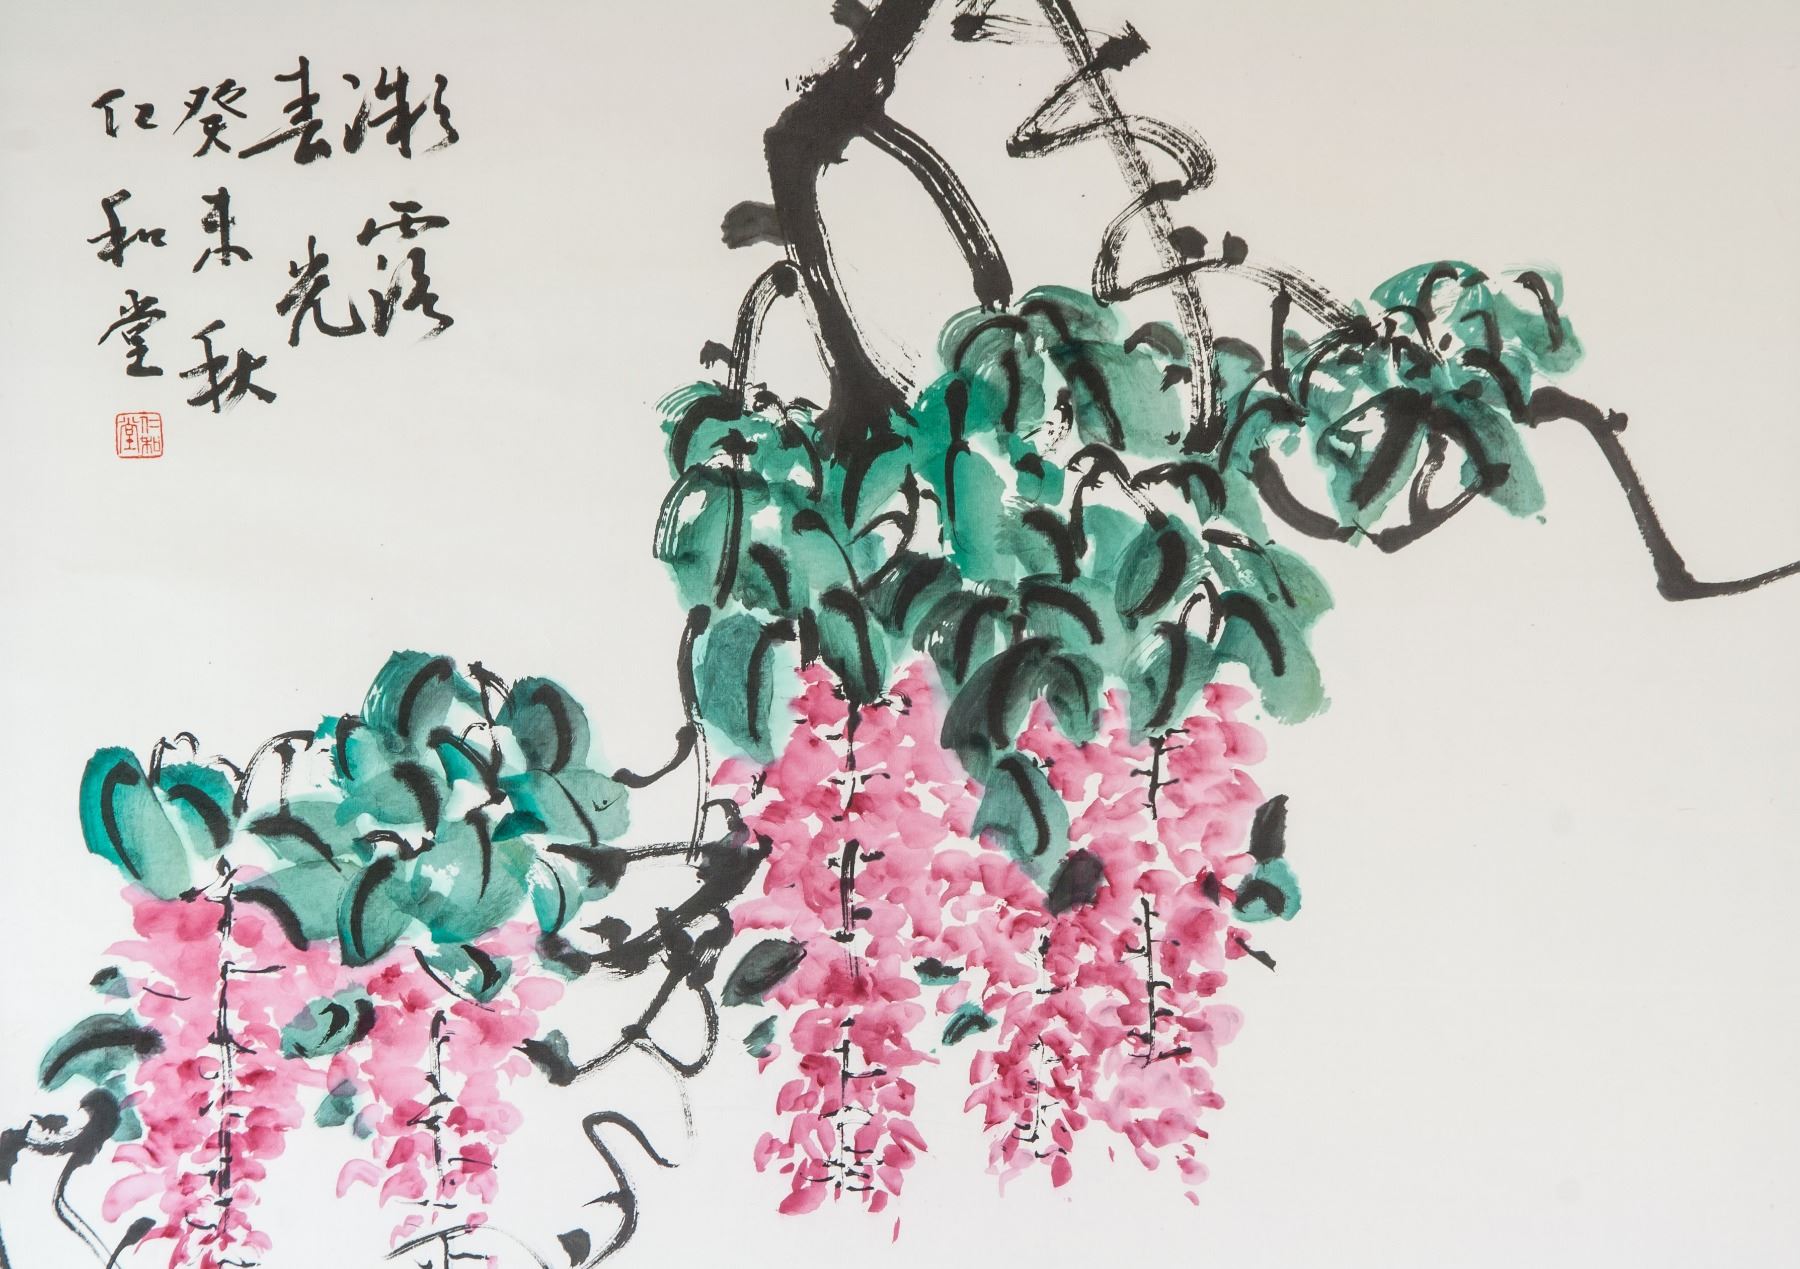 露
春光
癸未秋
仁和堂
仁和堂